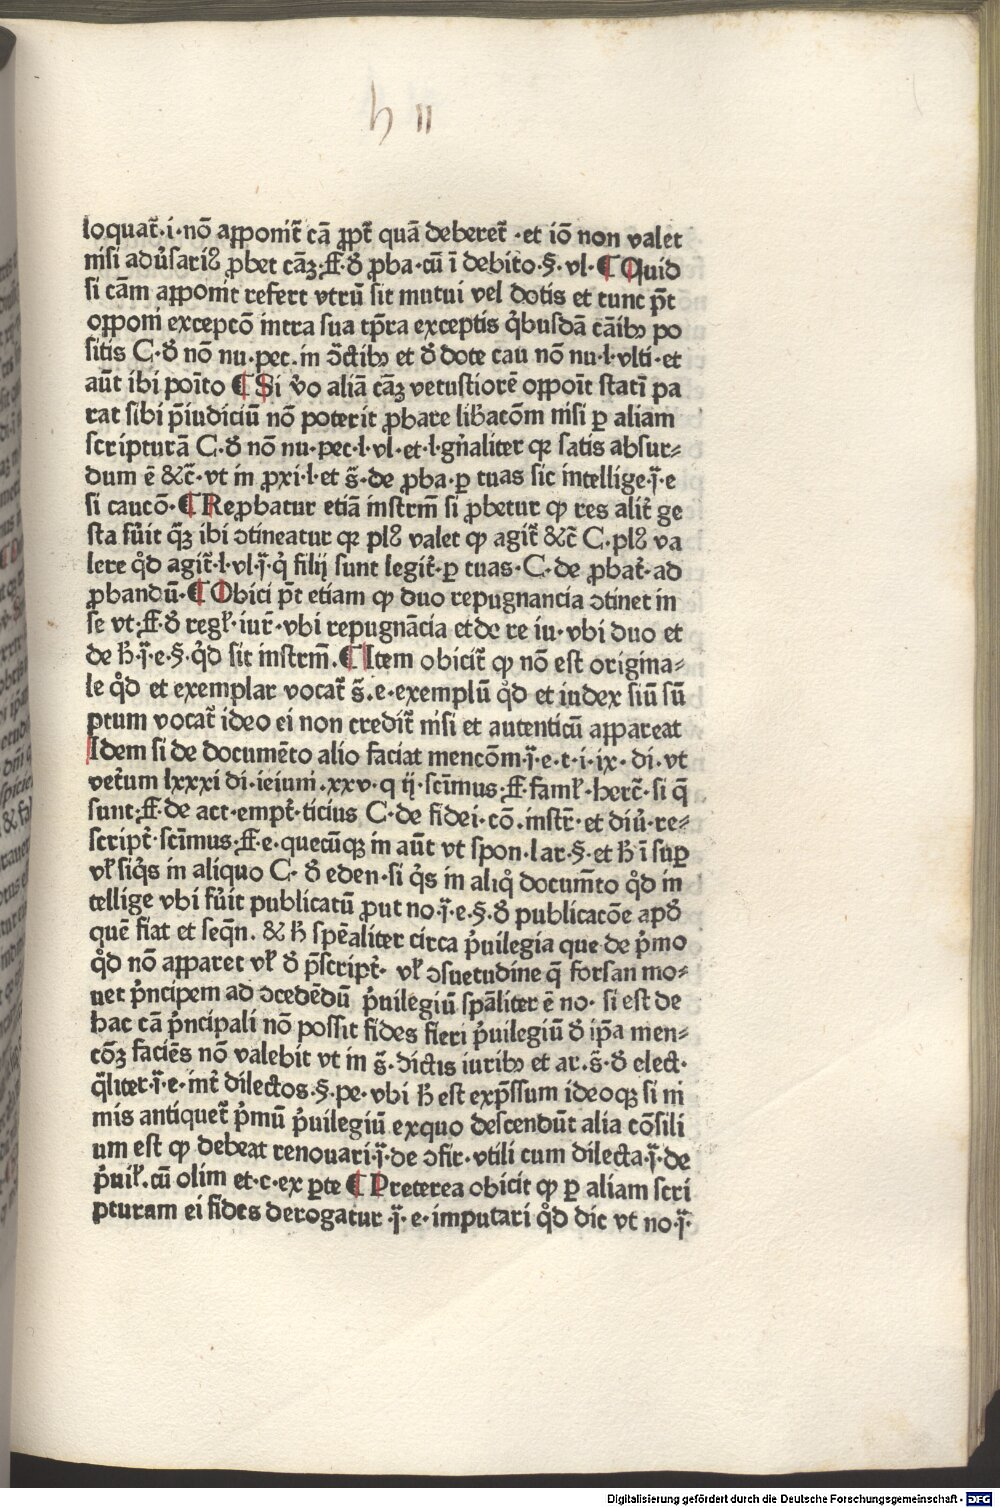 h II
loquat̄·i·nō apponit̄ cā ꝓpt̄ quā deberet̄ ·et iō non valet
nisi adu̾sariꝰ ꝓbet cāꝫ·ff·ꝺ̄ ꝓba·cū ī debito·§·vl·¶ Quid
si cām apponit refert vtrū sit mutui vel dotis et tunc p̄t
opponi exceptō intra sua tp̄ra exceptis qͥbusdā cāibꝫ po
sitis C·ꝺ̄ nō nu·pec·in ꝯ̄ctibꝫ et ꝺ̄ dote cau nō nu·l·vlti·et
aūt ibi poīto ¶ Si v̊o aliā cāꝫ vetustiorē oppoīt statī pa
rat sibi p̄iudiciū nō poterit ꝓbare lib̾acōm nisi ꝑ aliam
scripturā C·ꝺ̄ nō nu·pec·l·vl·et·l·gn̄aliter qꝛ satis absur⸗
dum ē &c̄·vt in ꝓxi·l·et s̄·de ꝓba·ꝑ tuas sic intellige·j̄·e
si caucō·¶ Reꝓbatur etiā instrm̄ si ꝓbetur ꝙ res alit̾ ge
sta fu̾it q̄ꝫ ibi ꝯtineatur qꝛ plꝰ valet ꝙ agit̄ &c̄ C·plꝰ va
lere qͦd agit̄·l·vl·j̄·qͥ filij sunt legit̾·ꝑ tuas·C·de ꝓbat̾·ad
ꝓbandū·¶ Obici p̄t etiam ꝙ duo repugnancia ꝯtinet in
se vt·ff·ꝺ̄ regl̄·iur̄·vbi repugnācia et de re iu·vbi duo et
de h̄·j̄·e·§·qͦd sit instrm̄·¶ Item obicit̄ ꝙ nō est origina⸗
le qͦd et exemplar vocat̄ s̄·e·exemplū qͦd et iudex siū sū
ptum vocat̄ ideo ei non credit̄ nisi et autenticū appareat
Idem si de documēto alio faciat mencōm·j̄·e·t·i·ix·di·vt
vet̾um lxxxi di·ieiuni·xxv·q ij·scīmus·ff·faml̄·herc̄·si q̄
sunt·ff·de act·empt̾·ticius C·de fidei·cō·instr̄·et diu̾·re⸗
script̾·scīmus·ff·e·quecūqꝫ in aūt vt spon·lar·§·et h̄ ī suꝑ
vl̄ siqͥs in aliquo C·ꝺ̄ eden·si qͥs in aliqͦ docum̄to qͦd in
tellige vbi fu̾it publicatū ꝓut no·j̄·e·§·ꝺ̄ publicacōe apꝺ̄
quē fiat et seqn̄·&h̄ spēaliter circa pͥuilegia que de pͥmo
qͦd nō apparet vl̄ ꝺ̄ p̄script̾·vl̄ ꝯsuetudine q̄ forsan mo⸗
uet pͥncipem ad ꝯcedēdū pͥuilegiū spāliter ē no·si est de
hac cā pͥncipali nō possit fides fieri pͥuilegiū ꝺ̄ ip̄a men⸗
cōꝫ faciēs nō valebit vt in s̄·ꝺictis iuribꝫ et ar·s̄·ꝺ̄ elect·
q̄liter·j̄·e·int̾ dilectos·§·pe·vbi h̄ est exp̄ssum ideoqꝫ si ni
mis antiquet̄ pͥmū pͥuilegiū exquo descendūt alia cōsili
um est ꝙ debeat renouari·j̄·de ꝯfir·vtili cum dilecta·j̄·de
pͥuil̄·cū olim et·c·ex ꝑte ¶ Preterea obicit ꝙ ꝑ aliam scri
pturam ei fides derogatur·j̄·e·imputari qͦd dic vt no·j̄·
Digitalisierung gefördert durch die Deutsche Forschungsgemeinschaft - DFG